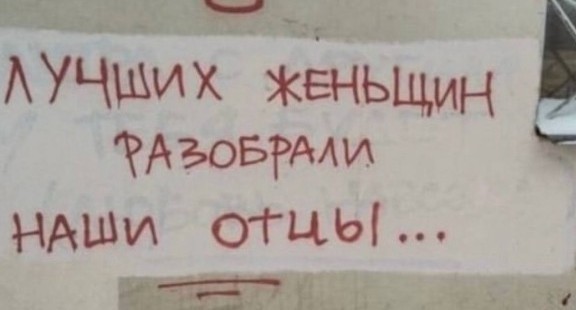 ЛУЧШИХ ЖЕНЬЩИН
РАЗОБРАЛИ
НАШИ ОТЦЫ...